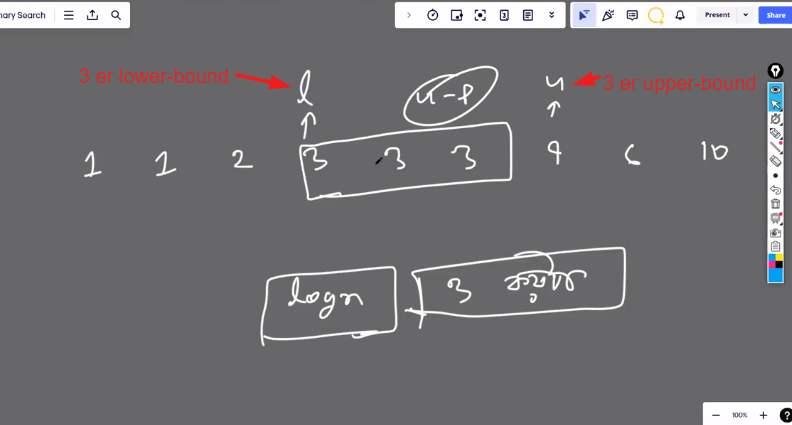 nary Search
Present
Share
3 er lower-bound
l
u-l
u
3 er upper-bound
1 1 2 3 3 3 4 6 10
logn
3 কয়বার
100%